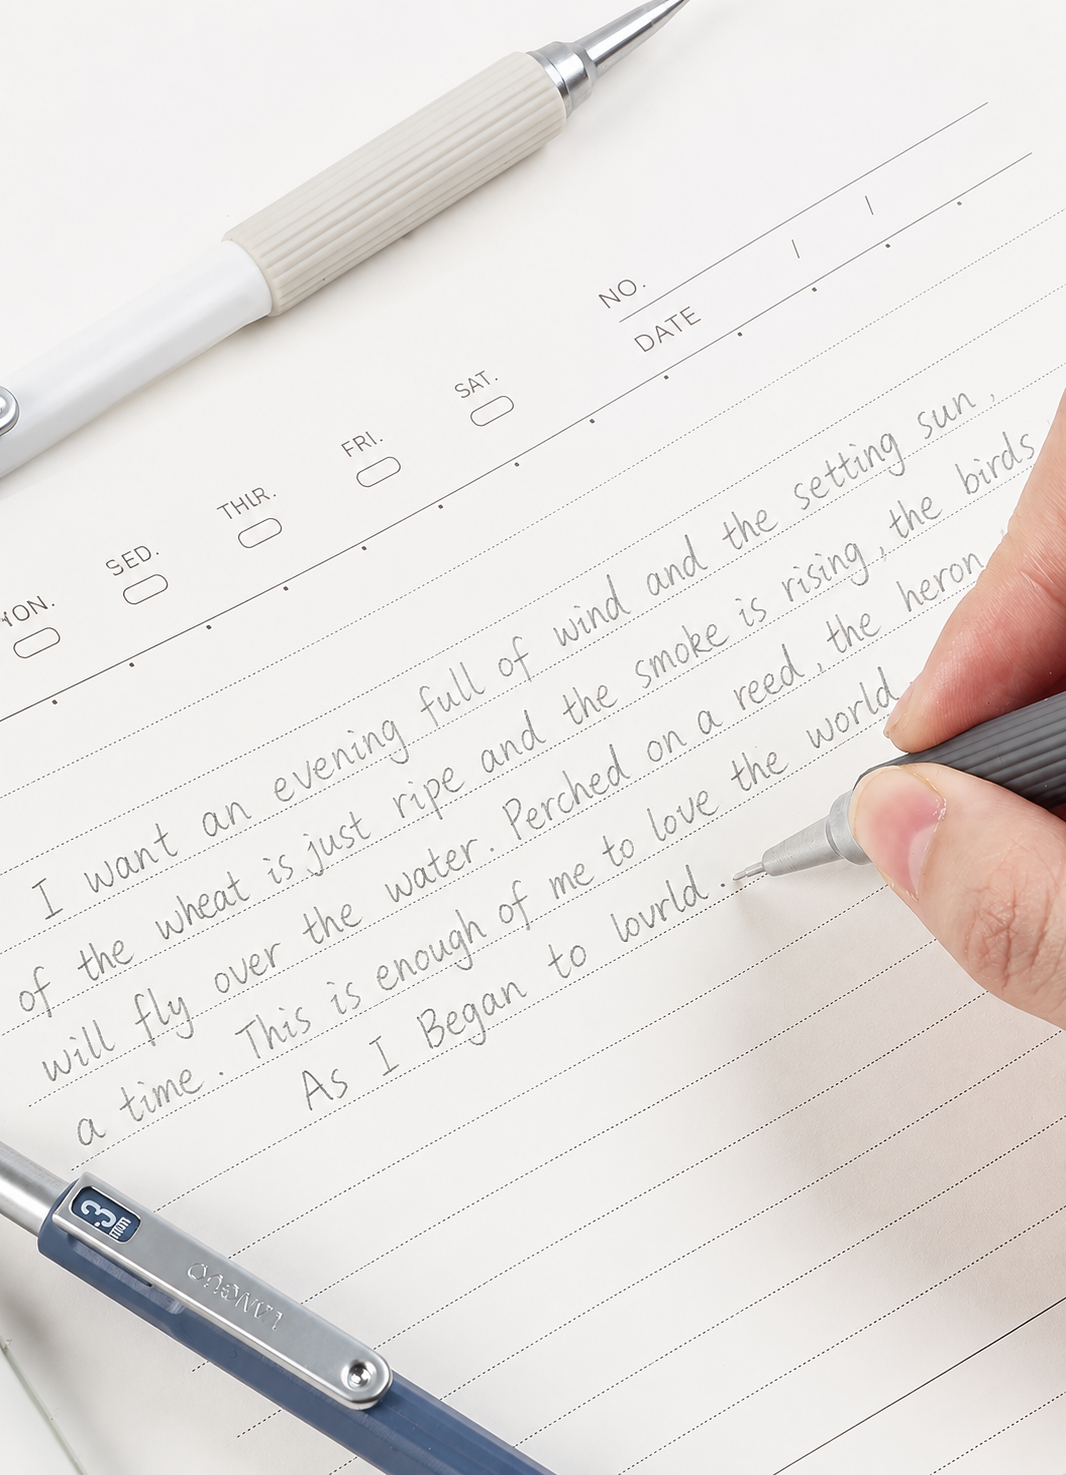 NO.
DATE / /
MON. SED. THUR. FRI. SAT.
I want an evening full of wind and the setting sun,
of the wheat is just ripe and the smoke is rising, the birds
will fly over the water. Perched on a reed, the heron
a time. This is enough of me to love the world
As I Began to lovrld.
.3 mm